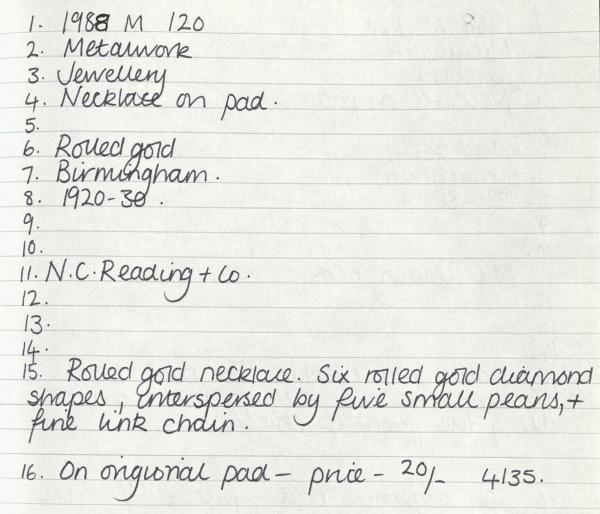 1. 1988 M 120
2. Metalwork
3. Jewellery
4. Necklace on pad.
5.
6. Rolled gold
7. Birmingham.
8. 1920-30.
9.
10.
11. N.C. Reading + Co.
12.
13.
14.
15. Rolled gold necklace. Six rolled gold diamond
shapes, interspersed by five small pearls, +
fine link chain.
16. On origional pad - price - 20/- 4135.